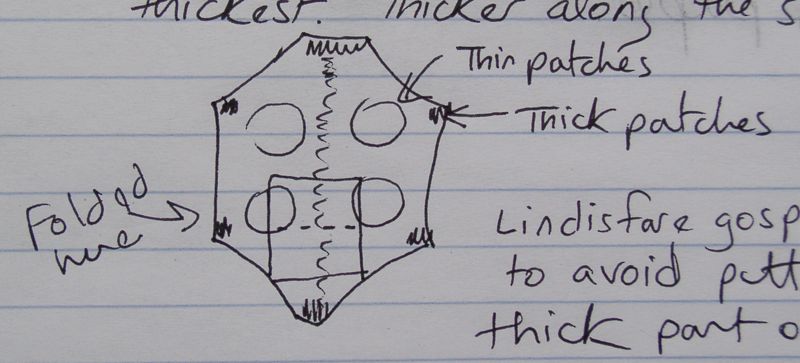 thickest. Thicker along the s
Thin patches
Thick patches
Folded
here
Lindisfare gosp
to avoid putt
thick part o